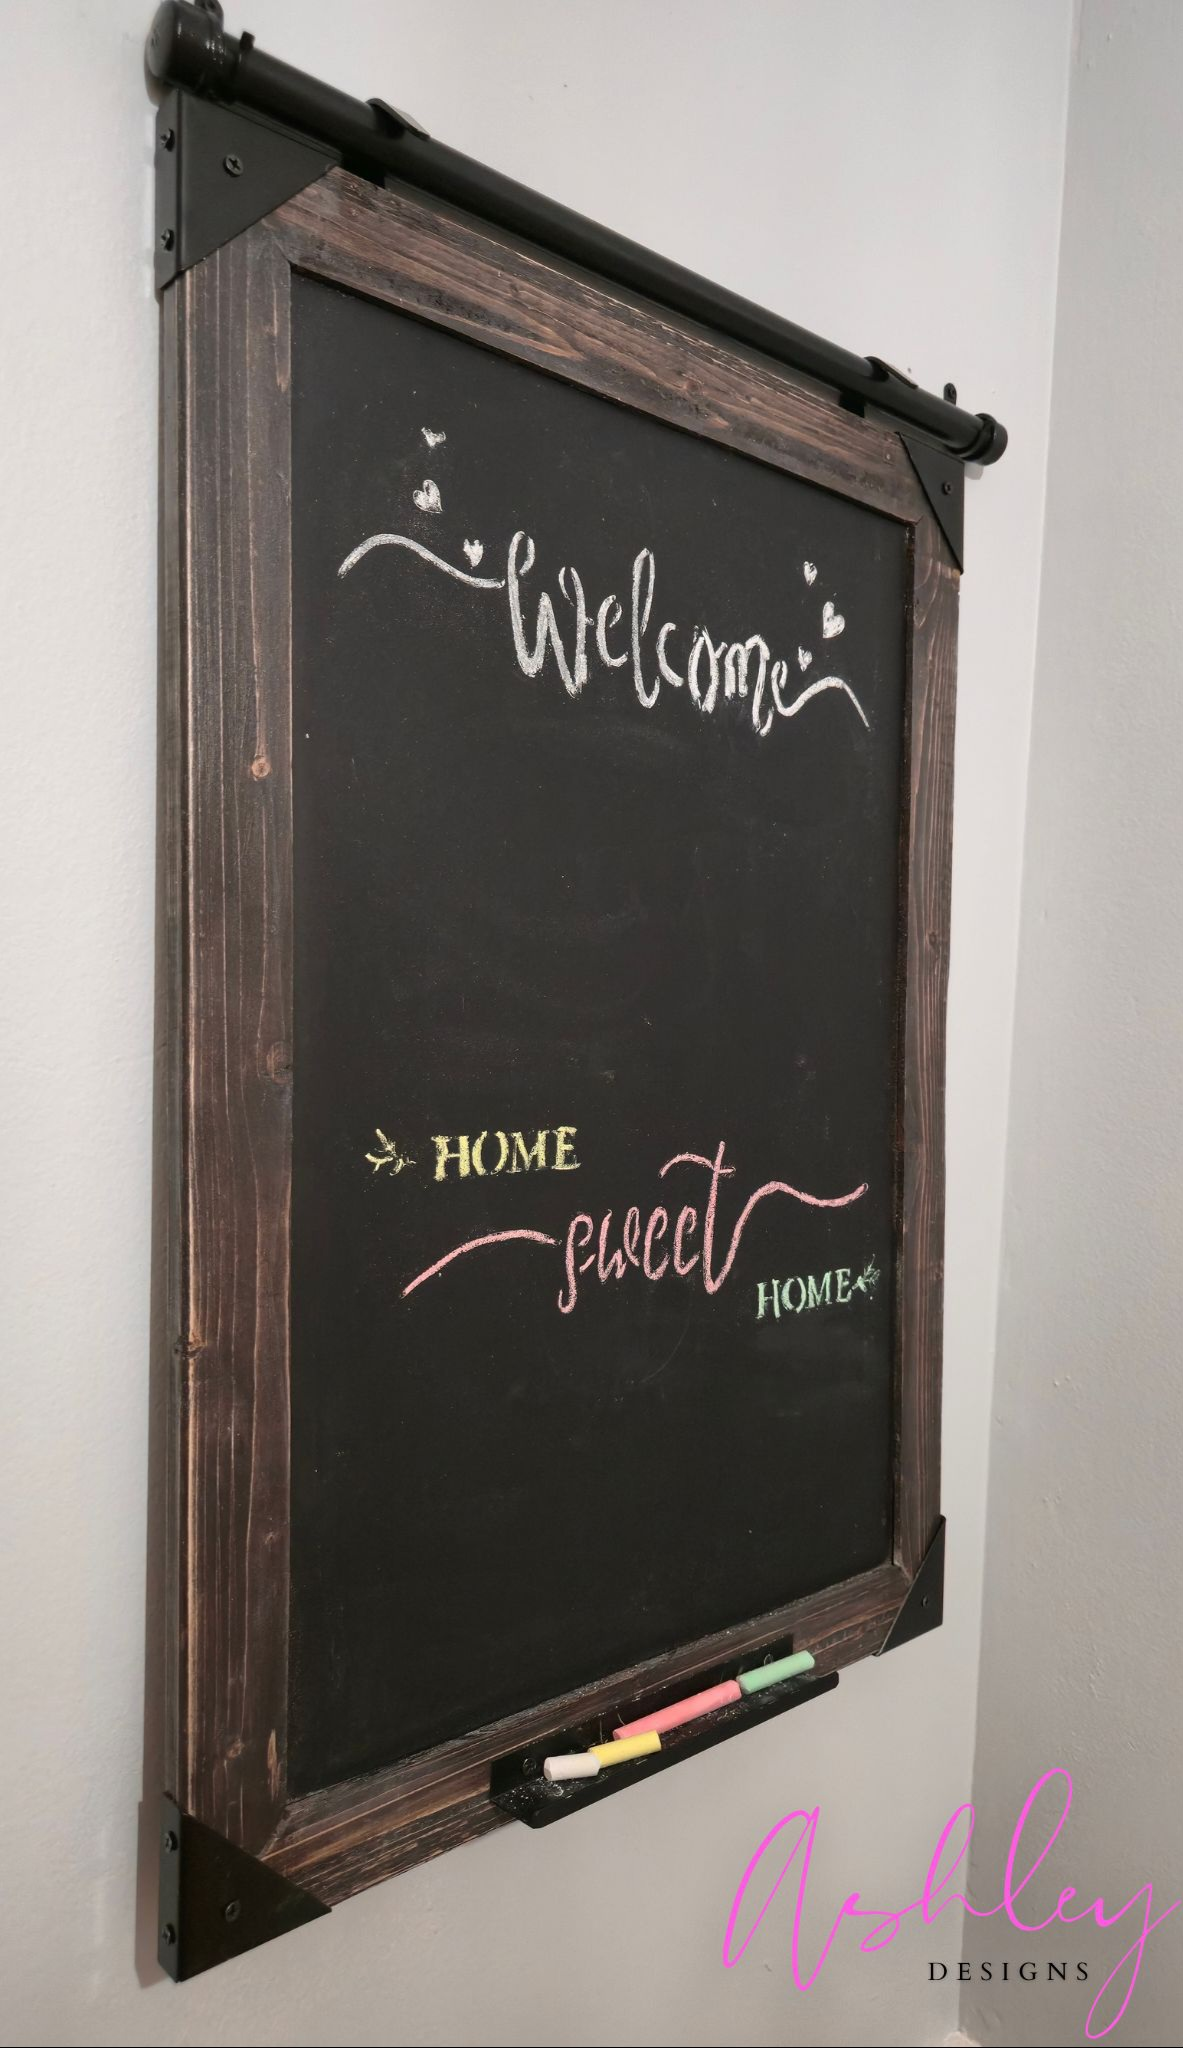 Welcome
HOME
sweet
HOME
Ashley
DESIGNS